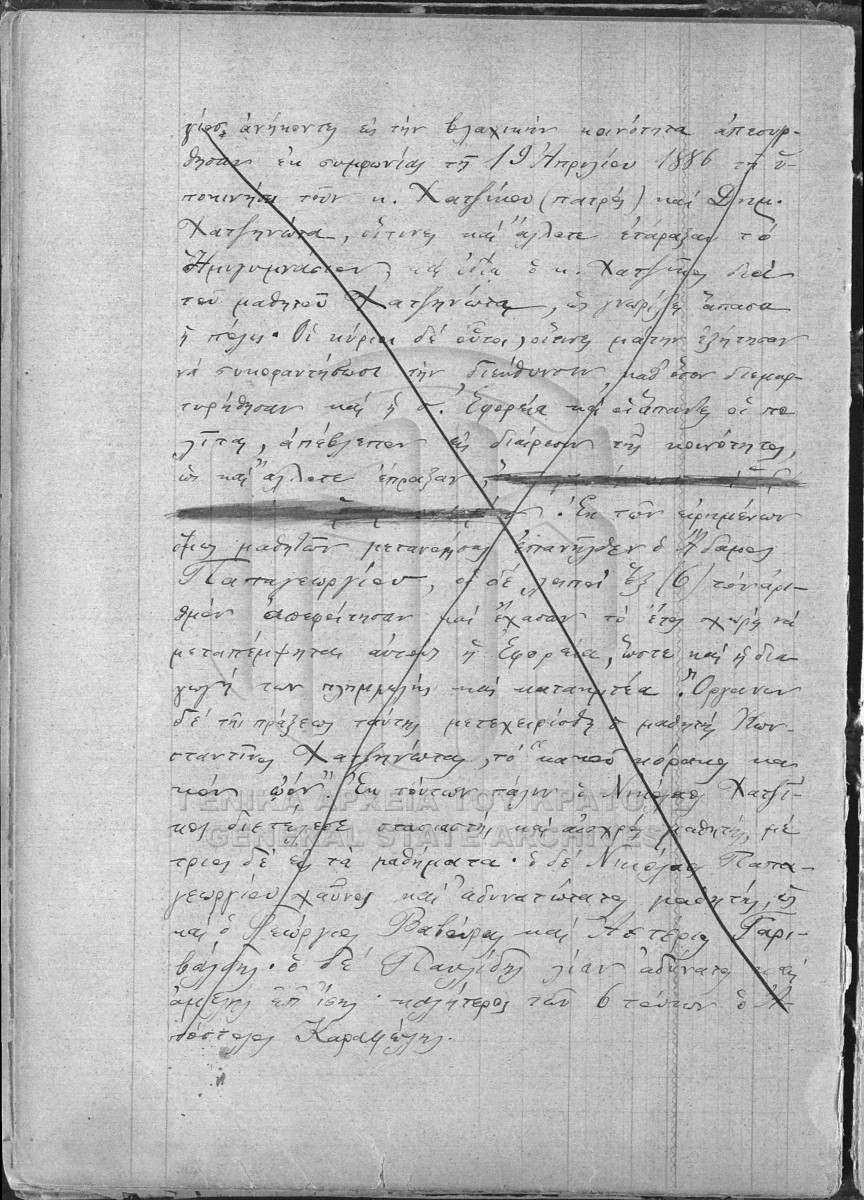 γίου, ἀνήκοντες εἰς τὴν βλαχικὴν κοινότητα ἀπεσύρ-
θησαν ἐκ συμφωνίας τῇ 19 Ἀπριλίου 1886 τῇ ὑ-
ποκινήσει τῶν κ. Χατζίκου (πατρὸς) καὶ Δημ.
Χατζηνώτα, οἵτινες καὶ ἄλλοτε ἐτάραξαν τὸ
Ἡμιγυμνάσιον, καὶ ἰδίᾳ ὁ κ. Χατζῖκος διὰ
τοῦ μαθητοῦ Χατζηνώτα, ὡς γνωρίζει ἅπασα
ἡ πόλις. Οἱ κύριοι δὲ οὗτοι, οἵτινες μάτην ἐζήτησαν
νὰ συκοφαντήσωσι τὴν διεύθυνσιν, καθ' ὅσον διεμαρ-
τυρήθησαν καὶ ἡ σ. Ἐφορεία καὶ οἱ ἅπαντες οἱ πο
λῖται, ἀπέβλεπον εἰς διαίρεσιν τῆς κοινότητος,
ὡς καὶ ἄλλοτε ἔπραξαν,
. Ἐκ τῶν εἰρημένων
ὅμως μαθητῶν μετανοήσας ἐπανῆλθεν ὁ Ἀδάμος
Παπαγεωργίου, οἱ δὲ λοιποὶ ἓξ (6) τὸν ἀρι-
θμὸν ἀπεφοίτησαν καὶ ἔχασαν τὸ ἔτος χωρὶς νὰ
μεταπέμψηται αὐτοὺς ἡ Ἐφορεία, ὥστε καὶ ἡ δια
γωγή των πλημμελὴς καὶ κατακριτέα. Ὄργανον
δὲ τῆς πράξεως ταύτης μετεχειρίσθη ὁ μαθητὴς Κων-
σταντῖνος Χατζηνώτας, τὸ "κακοῦ κόρακος κα
κὸν ᾠόν". Ἐκ τούτων πάλιν ὁ Νικόλαος Χατζῖ-
κος διετέλεσε στασιαστὴς καὶ αἰσχρὸς μαθητής, μέ
τριος δὲ εἰς τὰ μαθήματα· ὁ δὲ Νικόλαος Παπα-
γεωργίου χαῦνος καὶ ἀδυνατώτατος μαθητής, ὡς
καὶ ὁ Γεώργιος Βαβούρας καὶ Ἀστέριος Γαρι-
βάλδης· ὁ δὲ Παυλίδης λίαν ἀδύνατος καὶ
ἀμελὴς ἐπ' ἴσης· καλήτερος τῶν 6 τούτων ὁ Ἀ-
πόστολος
ΓΕΝΙΚΑ ΑΡΧΕΙΑ ΤΟΥ ΚΡΑΤΟΥΣ
GENERAL STATE ARCHIVES